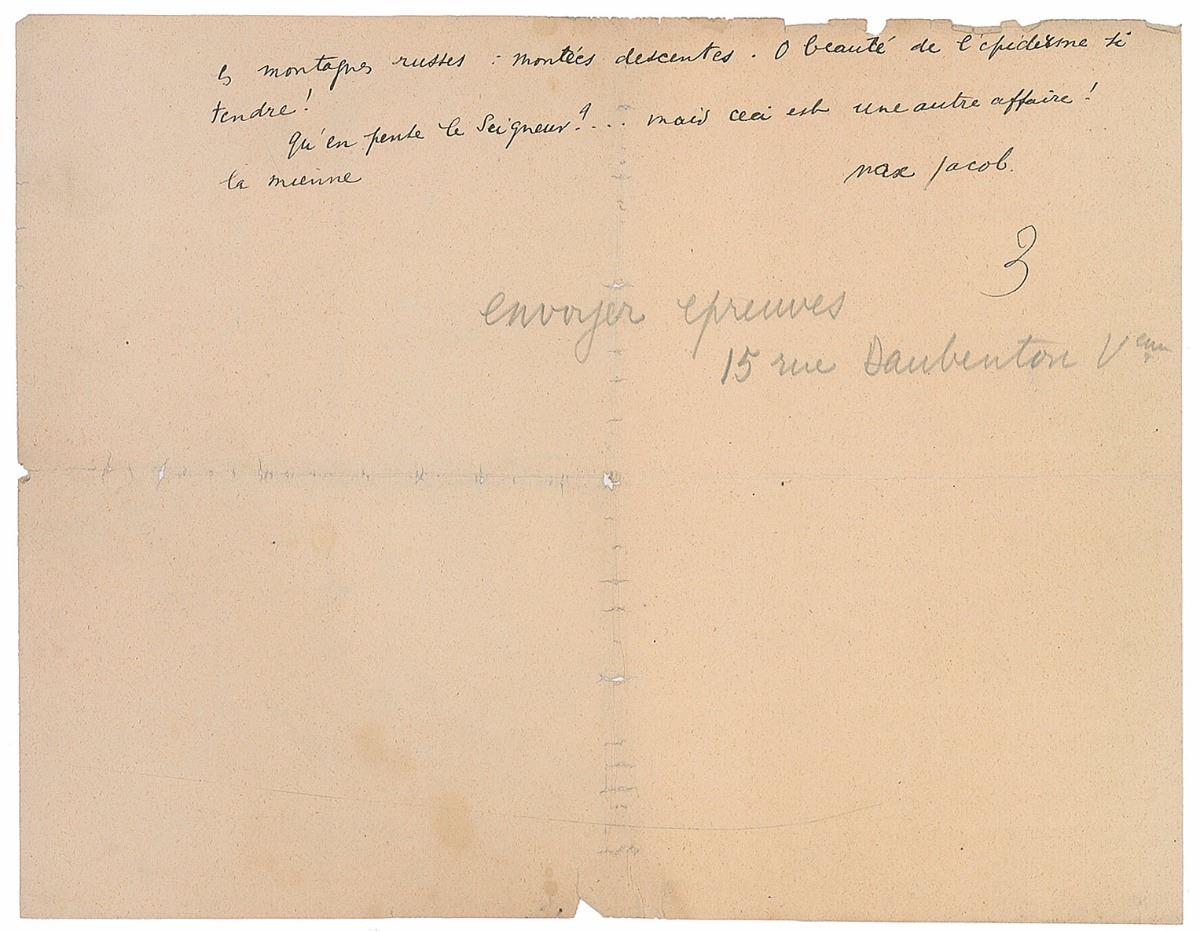 les montagnes russes : montées descentes. O beauté de l'épiderme si
tendre !
Qu'en pense le Seigneur ?... mais ceci est une autre affaire !
la mienne
Max Jacob.
3
envoyer epreuves
15 rue Daubenton V